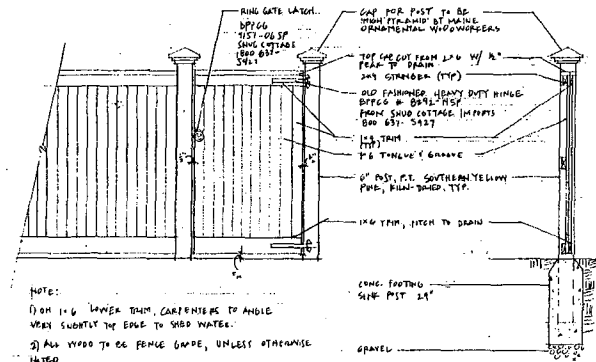 RING GATE LATCH
BPPCG
9157-065P
SNUG COTTAGE
800 637-
5427
CAP FOR POST TO BE
"HIGH PYRAMID" BY MAINE
ORNAMENTAL WOODWORKERS
TOP CAP CUT FROM 2x6 W/ ½"
PEAK TO DRAIN
2x4 STRINGER (TYP)
OLD FASHIONED HEAVY DUTY HINGE
BPPCG # 8292-
FROM SNUG COTTAGE IMPORTS
800 637-5427
1x4 TRIM
(TYP)
1x6 TONGUE & GROOVE
6" POST, P.T. SOUTHERN YELLOW
PINE, KILN-DRIED, TYP.
1x6 TRIM, PITCH TO DRAIN
CONC. FOOTING
SINK POST 29"
GRAVEL
NOTE:
1) ON 1x6 LOWER TRIM, CARPENTERS TO ANGLE
VERY SLIGHTLY TOP EDGE TO SHED WATER.
2) ALL WOOD TO BE FENCE GRADE, UNLESS OTHERWISE
NOTED